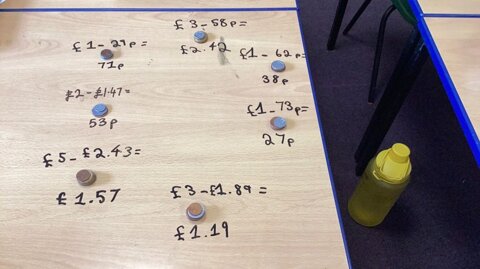 £3-58p=
£2.42
£1-29p=
71p
£1-62p=
38p
£2-£1.47=
53p
£1-73p=
27p
£5-£2.43=
£1.57
£3-£1.89=
£1.19